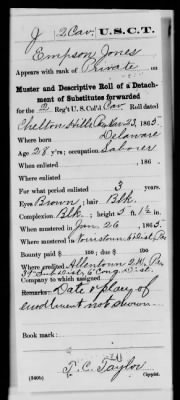 J | 2 Cav | U.S.C.T.
Empson Jones
Appears with rank of Private on
Muster and Descriptive Roll of a Detach-
ment of Substitutes forwarded
for the 2 Reg't U. S. Col'd Cav Roll dated
Chelton Hills Pa Mar 23, 1865.
Where born Delaware
Age 28 y'rs; occupation Laborer
When enlisted , 186 .
Where enlisted
For what period enlisted 3 years.
Eyes Brown; hair Blk.
Complexion Blk.; height 5 ft. 1½ in.
When mustered in Jan 26, 1865.
Where mustered in Norristown 6 Dist. Pa
Bounty paid $ 100; due $ 100
Where credited Allentown 2 W., Pa
6 Cong. Dist.
Company to which assigned
Remarks: Date & place of
enrollment not shown
Book mark:
T. C. Taylor
(340b) Copyist.